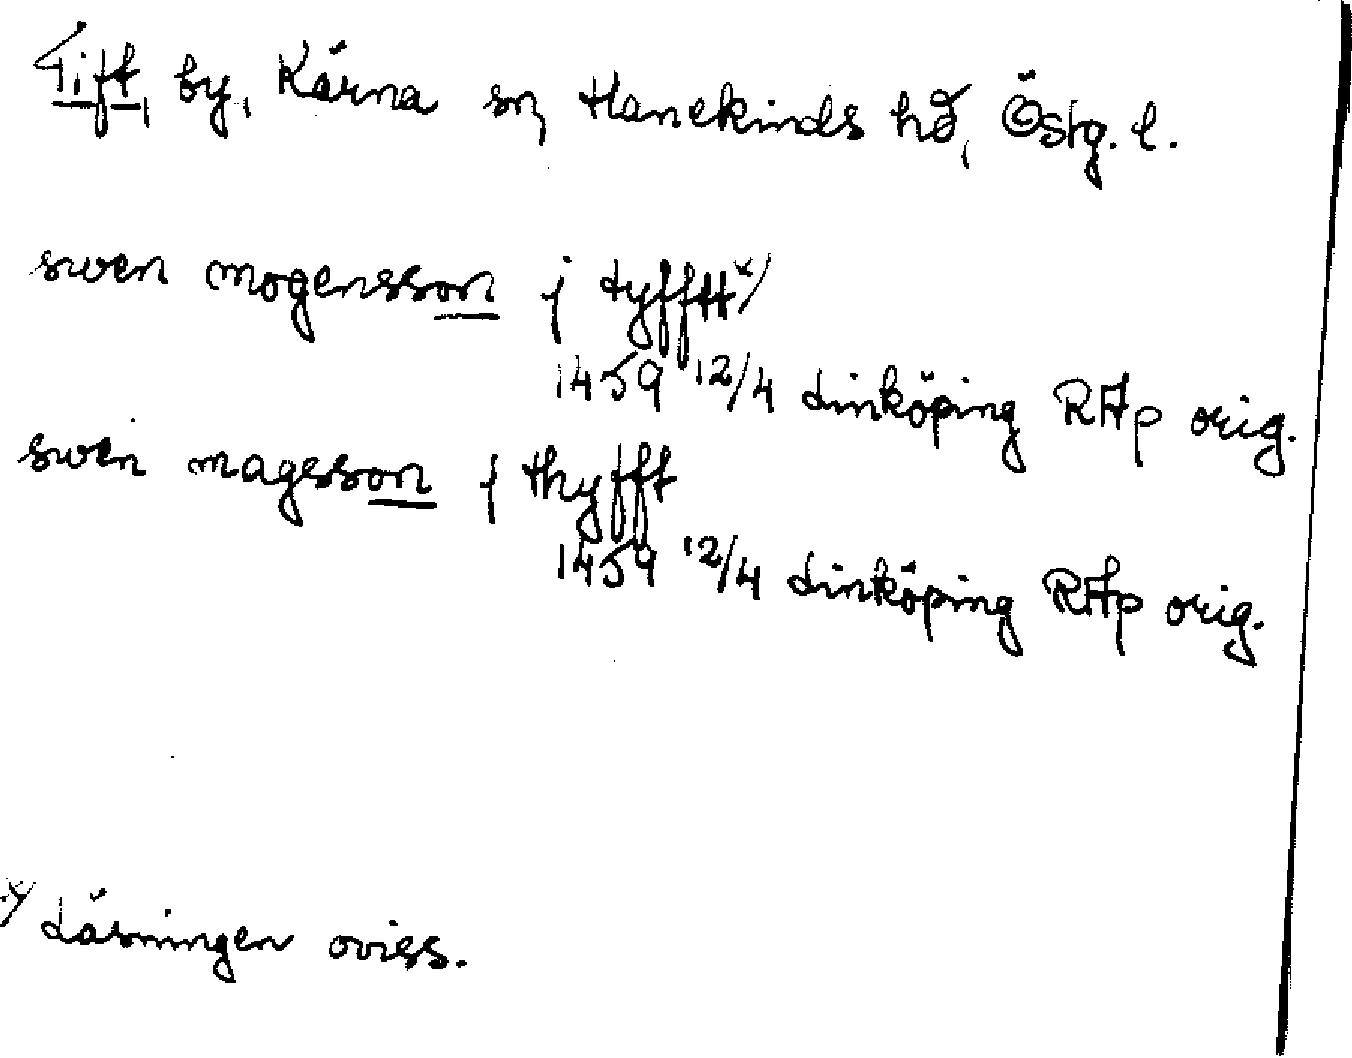 Tift, by, Kärna sn, Hanekinds hd, Östg. l.
swen mogensson j tyfftt x)
1459 12/4 Linköping RAp orig.
swen magesson j thyfft
1459 12/4 Linköping RAp orig.
x) Läsningen oviss.